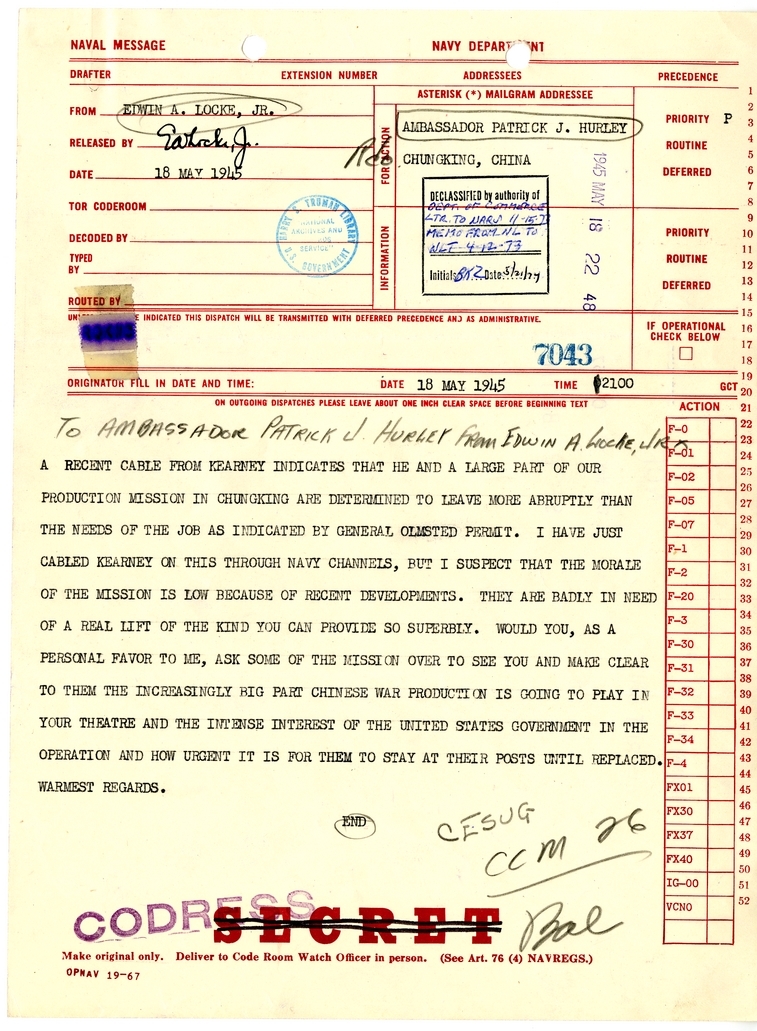 NAVAL MESSAGE NAVY DEPARTMENT
DRAFTER EXTENSION NUMBER ADDRESSEES PRECEDENCE
FROM EDWIN A. LOCKE, JR.
RELEASED BY EALocke, Jr.
DATE 18 MAY 1945
TOR CODEROOM
DECODED BY
TYPED
BY
ROUTED BY
ASTERISK (*) MAILGRAM ADDRESSEE
FOR ACTION
AMBASSADOR PATRICK J. HURLEY
CHUNGKING, CHINA
1945 MAY 18 22 48
INFORMATION
DECLASSIFIED by authority of
DEPT. OF COMMERCE
LTR. TO NARS 11-15-73
MEMO FROM NL TO
NLT 4-12-73
Initials BKZ Date
HARRY S. TRUMAN LIBRARY
NATIONAL
ARCHIVES AND
SERVICE
U.S. GOVERNMENT
PRIORITY P
ROUTINE
DEFERRED
PRIORITY
ROUTINE
DEFERRED
INDICATED THIS DISPATCH WILL BE TRANSMITTED WITH DEFERRED PRECEDENCE AND AS ADMINISTRATIVE.
7043
IF OPERATIONAL
CHECK BELOW
ORIGINATOR FILL IN DATE AND TIME: DATE 18 MAY 1945 TIME 2100 GCT
ON OUTGOING DISPATCHES PLEASE LEAVE ABOUT ONE INCH CLEAR SPACE BEFORE BEGINNING TEXT
TO AMBASSADOR PATRICK J. HURLEY FROM EDWIN A. LOCKE, JR X
A RECENT CABLE FROM KEARNEY INDICATES THAT HE AND A LARGE PART OF OUR
PRODUCTION MISSION IN CHUNGKING ARE DETERMINED TO LEAVE MORE ABRUPTLY THAN
THE NEEDS OF THE JOB AS INDICATED BY GENERAL OLMSTED PERMIT. I HAVE JUST
CABLED KEARNEY ON THIS THROUGH NAVY CHANNELS, BUT I SUSPECT THAT THE MORALE
OF THE MISSION IS LOW BECAUSE OF RECENT DEVELOPMENTS. THEY ARE BADLY IN NEED
OF A REAL LIFT OF THE KIND YOU CAN PROVIDE SO SUPERBLY. WOULD YOU, AS A
PERSONAL FAVOR TO ME, ASK SOME OF THE MISSION OVER TO SEE YOU AND MAKE CLEAR
TO THEM THE INCREASINGLY BIG PART CHINESE WAR PRODUCTION IS GOING TO PLAY IN
YOUR THEATRE AND THE INTENSE INTEREST OF THE UNITED STATES GOVERNMENT IN THE
OPERATION AND HOW URGENT IT IS FOR THEM TO STAY AT THEIR POSTS UNTIL REPLACED.
WARMEST REGARDS.
END
CESUG
CCM 26
CODRESS
SECRET
Bal
Make original only. Deliver to Code Room Watch Officer in person. (See Art. 76 (4) NAVREGS.)
OPNAV 19-67
ACTION
F-0
F-01
F-02
F-05
F-07
F-1
F-2
F-20
F-3
F-30
F-31
F-32
F-33
F-34
F-4
FX01
FX30
FX37
FX40
IG-00
VCNO
1
2
3
4
5
6
7
8
9
10
11
12
13
14
15
16
17
18
19
20
21
22
23
24
25
26
27
28
29
30
31
32
33
34
35
36
37
38
39
40
41
42
43
44
45
46
47
48
49
50
51
52